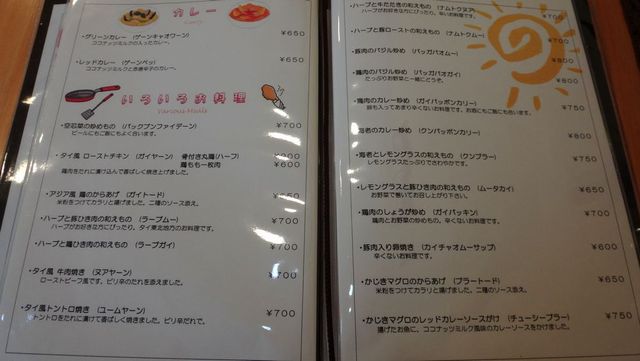 カレー
Curry
・グリーンカレー (ゲーンキャオワーン) ¥650
ココナッツミルクの入ったカレー。
・レッドカレー (ゲーンペッ) ¥650
ココナッツミルクと赤唐辛子のカレー。
いろいろお料理
Various Meals
・空芯菜の炒めもの (パックブンファイデーン) ¥700
ビールにもご飯にもよく合います。
・タイ風 ローストチキン (ガイヤーン) 骨付き丸鶏(ハーフ)
鶏もも一枚肉 ¥600
鶏肉をたれに漬け込んで香ばしく焼き上げました。
・アジア風 鶏のからあげ (ガイトード) ¥650
米粉をつけてカラリと揚げました。二種のソース添え。
・ハーブと豚ひき肉の和えもの (ラープムー) ¥700
ハーブがお好きな方にぴったり、タイ東北地方のお料理です。
・ハーブと鶏ひき肉の和えもの (ラープガイ) ¥700
・タイ風 牛肉焼き (ヌアヤーン) ¥700
ローストビーフ風です。ピリ辛のたれを添えました。
・タイ風トントロ焼き (コームヤーン) ¥700
トントロをたれに漬けて香ばしく焼きました。ピリ辛だれで。
・ハーブと牛たたきの和えもの (ナムトクヌア) ¥700
ハーブが好きな方にぴったり、辛いお料理です。
・ハーブと豚ローストの和えもの (ナムトクムー) ¥700
・豚肉のバジル炒め (パッガパオムー) ¥800
・鶏肉のバジル炒め (パッガパオガイ) ¥800
たっぷりお野菜と一緒にどうぞ。
・鶏肉のカレー炒め (ガイパッポンカリー) ¥750
卵も入ってあまり辛くないお料理です。お酒にもご飯にも合います。
・海老のカレー炒め (クンパッポンカリー) ¥800
・海老とレモングラスの和えもの (クンプラー) ¥750
レモングラスたっぷりでさわやかです。
・レモングラスと豚ひき肉の和えもの (ムータカイ) ¥650
お野菜で巻いてお召し上がり下さい。
・鶏肉のしょうが炒め (ガイパッキン) ¥700
鶏肉とお野菜の炒めもの。辛くないお料理です。
・豚肉入り卵焼き (カイチャオムーサップ) ¥600
辛くないお料理です。
・かじきマグロのからあげ (プラートード) ¥650
米粉をつけてカラリと揚げました。二種のソース添え。
・かじきマグロのレッドカレーソースがけ (チューシープラー) ¥750
揚げたお魚に、ココナッツミルク風味のカレーソースをかけました。